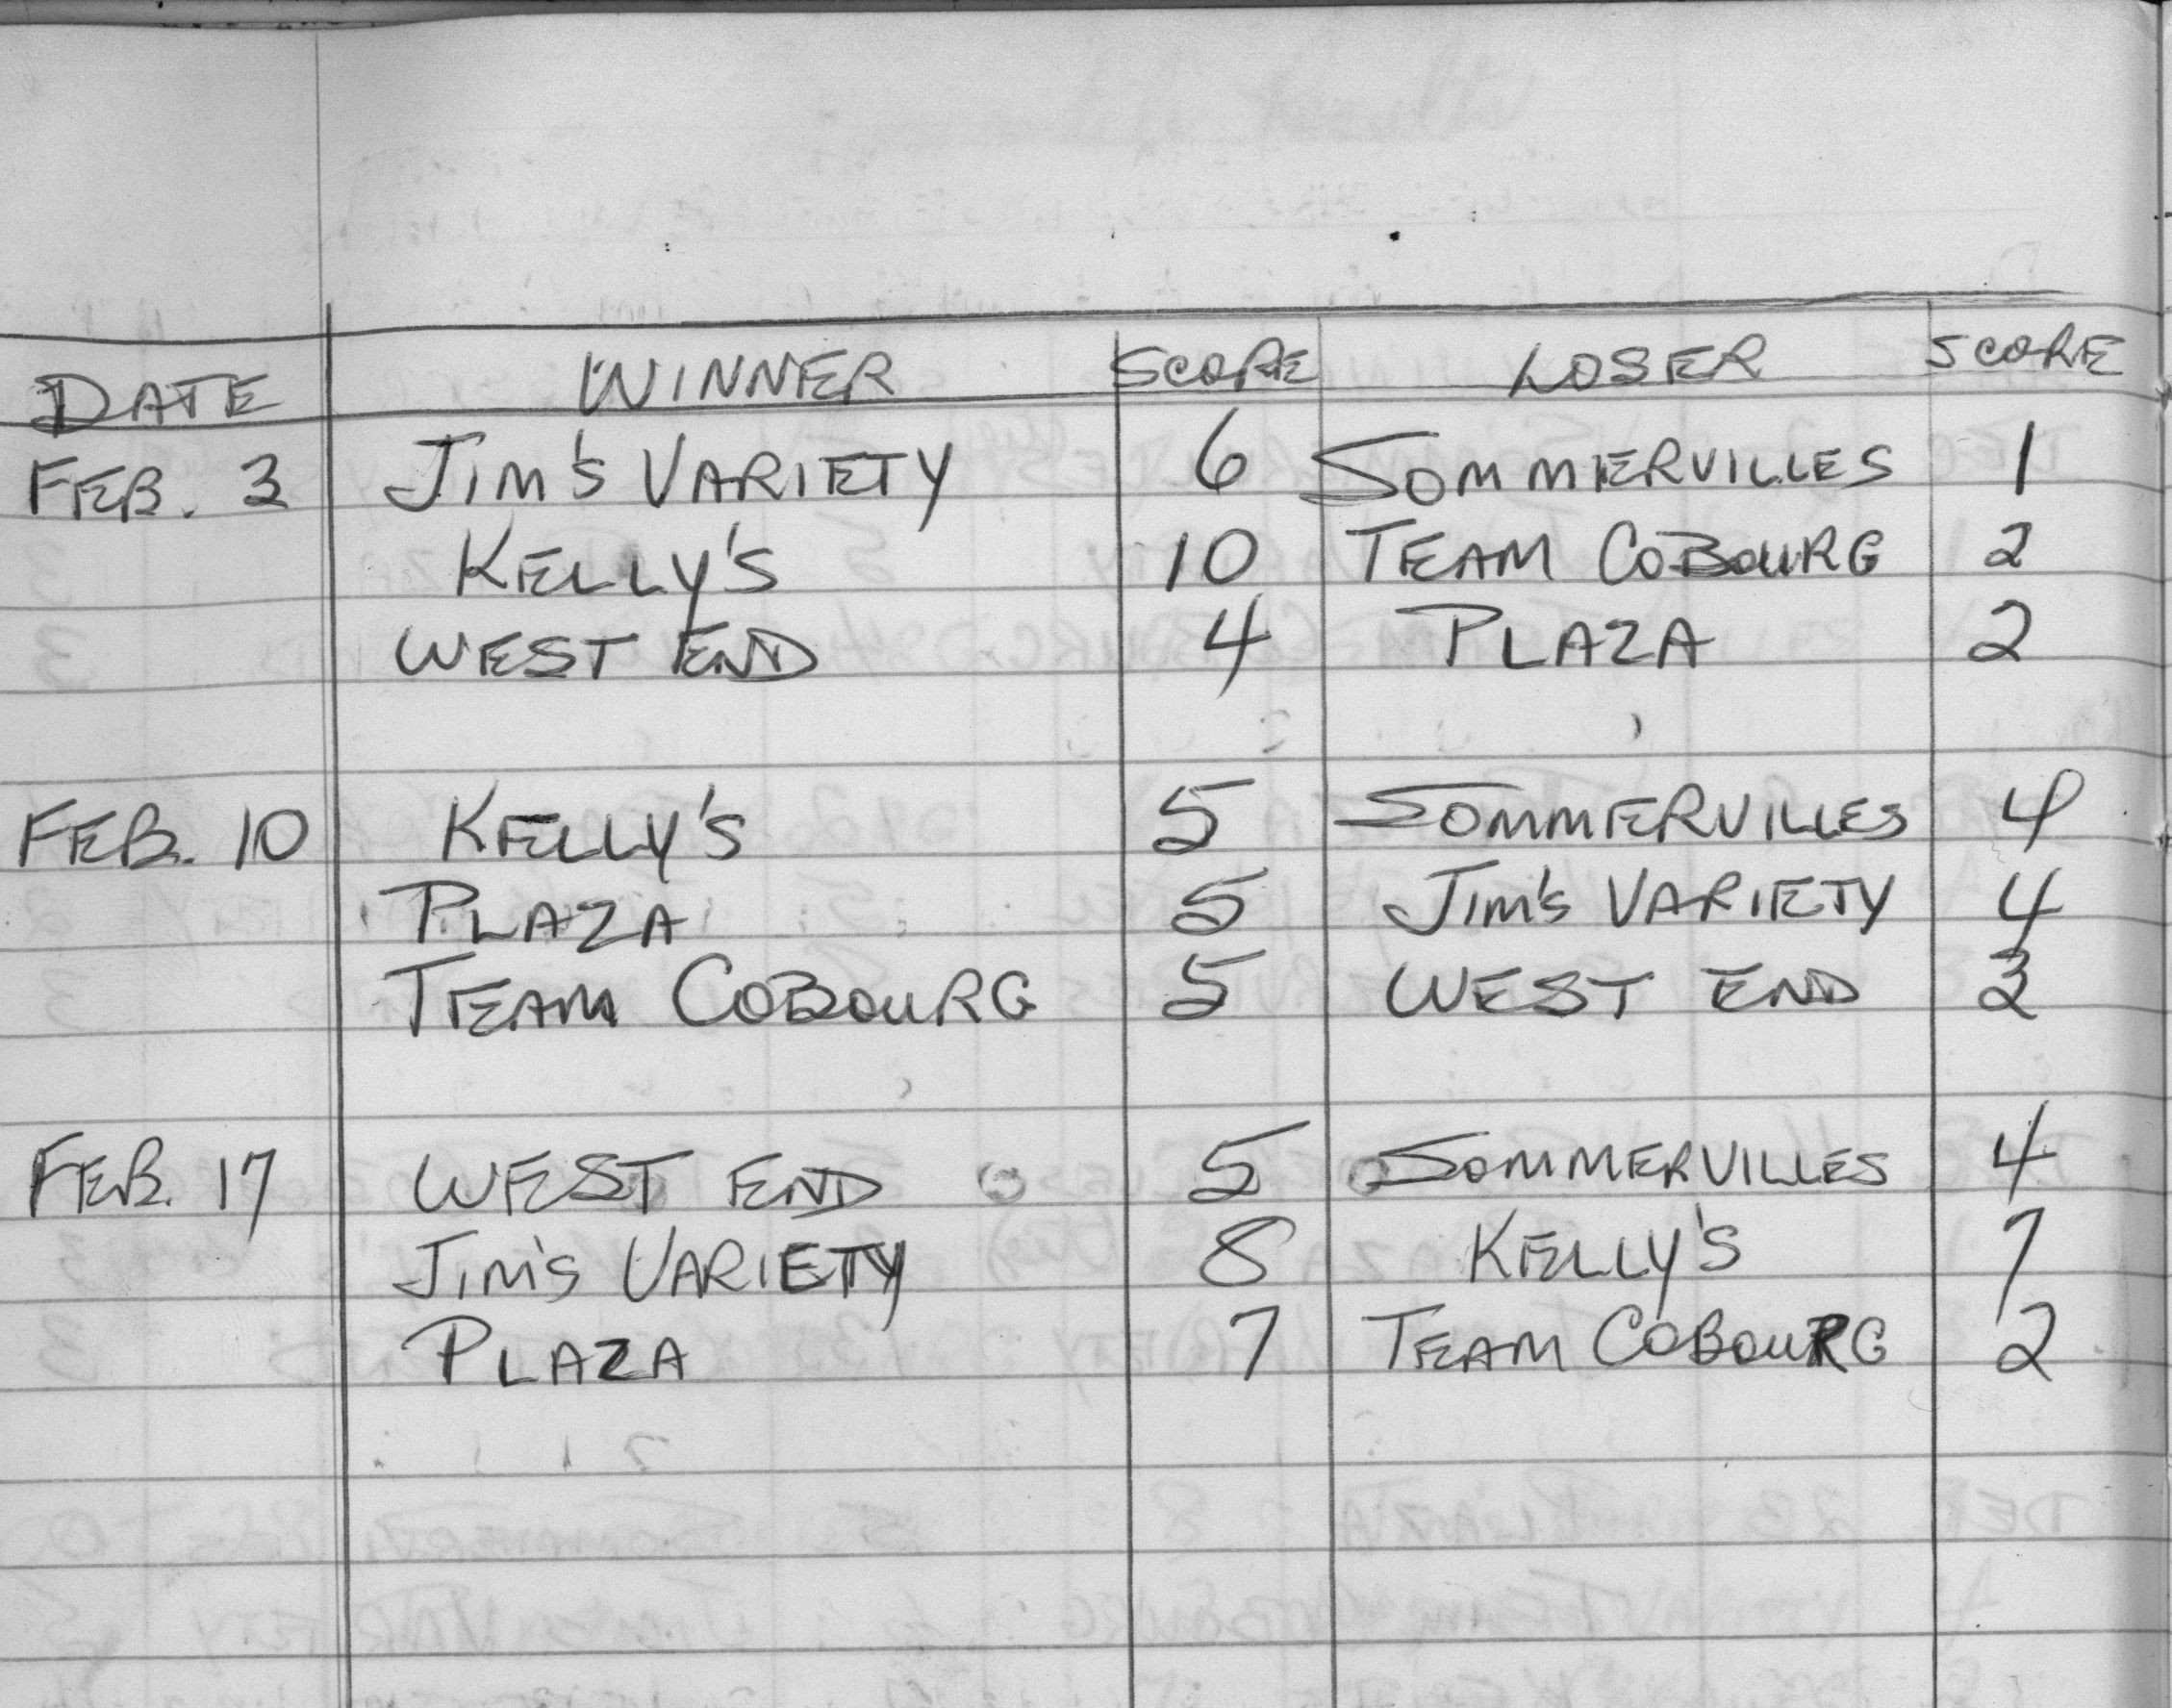 DATE WINNER SCORE LOSER SCORE
FEB. 3 JIM'S VARIETY 6 SOMMERVILLES 1
KELLY'S 10 TEAM COBOURG 2
WEST END 4 PLAZA 2
FEB. 10 KELLY'S 5 SOMMERVILLES 4
PLAZA 5 JIM'S VARIETY 4
TEAM COBOURG 5 WEST END 3
FEB. 17 WEST END 5 SOMMERVILLES 4
JIM'S VARIETY 8 KELLY'S 7
PLAZA 7 TEAM COBOURG 2